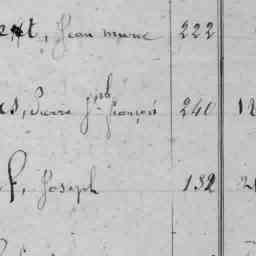 t, Jean marie 222
s, Pierre jph françois 240
f, Joseph 132